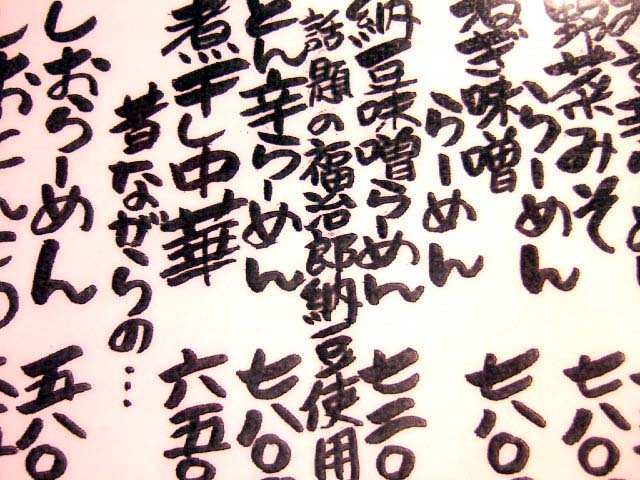 野菜みそ
らーめん 七八〇
ねぎ味噌
らーめん 七八〇
納豆味噌らーめん 七三〇
話題の福治郎納豆使用
とん辛らーめん 七八〇
煮干し中華 六五〇
昔ながらの…
しおらーめん 五八〇